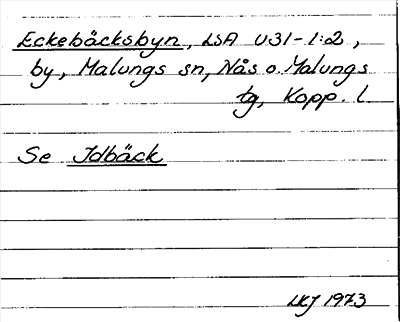 Eckebäcksbyn, LSA U31-1:2,
by, Malungs sn, Nås o. Malungs
tg, Kopp. l.
Se Idbäck
LKJ 1973